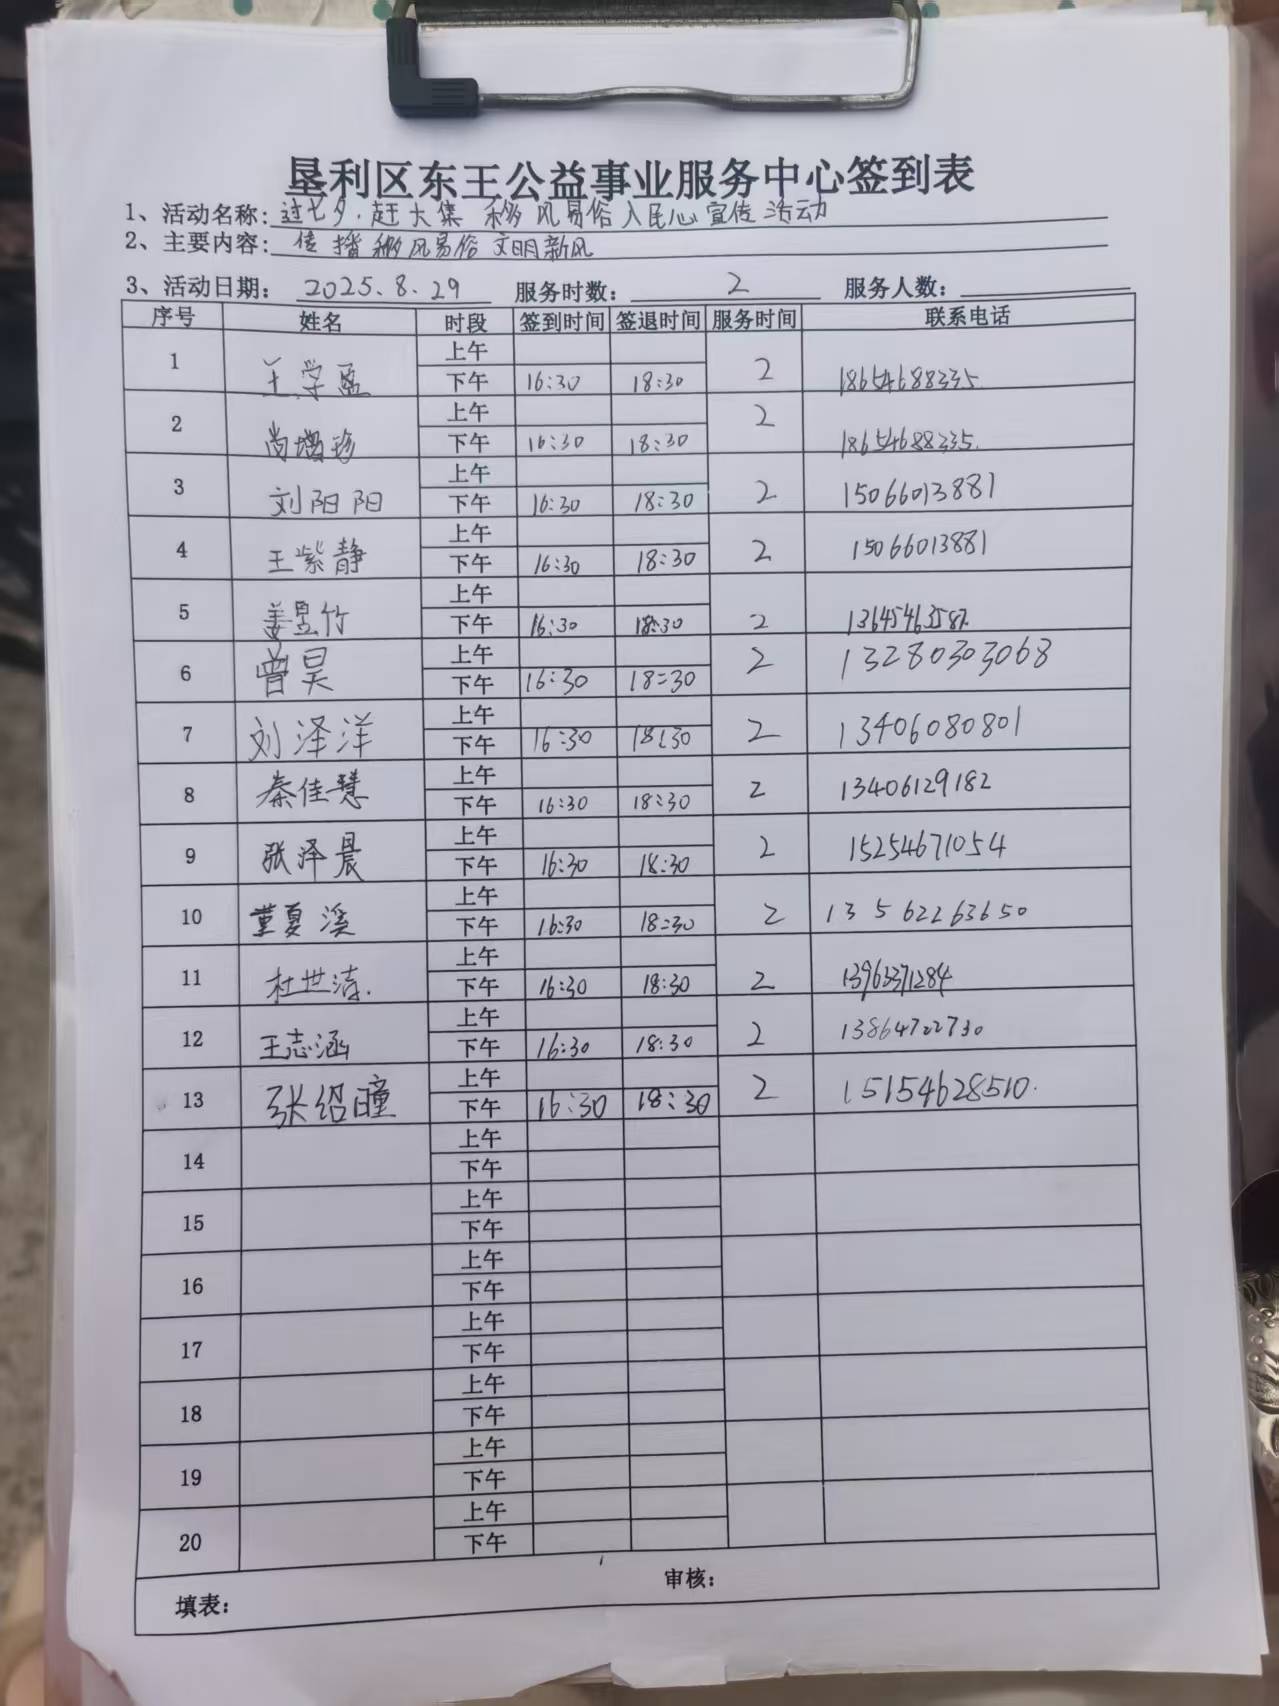 垦利区东王公益事业服务中心签到表
1、活动名称: 过七夕.赶大集 移风易俗入民心宣传活动
2、主要内容: 传播移风易俗文明新风
3、活动日期: 2025.8.29 服务时数: 2 服务人数:
序号 姓名 时段 签到时间 签退时间 服务时间 联系电话
1 王学盈 上午 2 18654688335.
下午 16:30 18:30
2 尚增珍 上午 2 18654688335.
下午 16:30 18:30
3 刘阳阳 上午 2 15066013881
下午 16:30 18:30
4 王紫静 上午 2 15066013881
下午 16:30 18:30
5 姜昱竹 上午 2
下午 16:30 18:30
6 曾昊 上午 2 13280303068
下午 16:30 18:30
7 刘泽洋 上午 2 13406080801
下午 16:30 18:30
8 秦佳慧 上午 2 13406129182
下午 16:30 18:30
9 张泽晨 上午 2 15254671054
下午 16:30 18:30
10 董夏溪 上午 2 13562263650
下午 16:30 18:30
11 杜世涛. 上午 2 13963371284
下午 16:30 18:30
12 王志涵 上午 2 13864722730
下午 16:30 18:30
13 张绍瞳 上午 2 15154628510.
下午 16:30 18:30
14 上午
下午
15 上午
下午
16 上午
下午
17 上午
下午
18 上午
下午
19 上午
下午
20 上午
下午
填表: 审核: